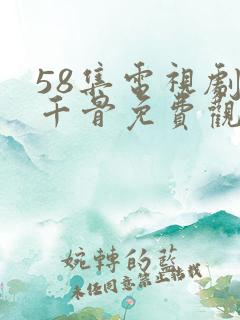 58集電視劇
千骨免費觀
婉轉的藍
未經同意禁止轉載